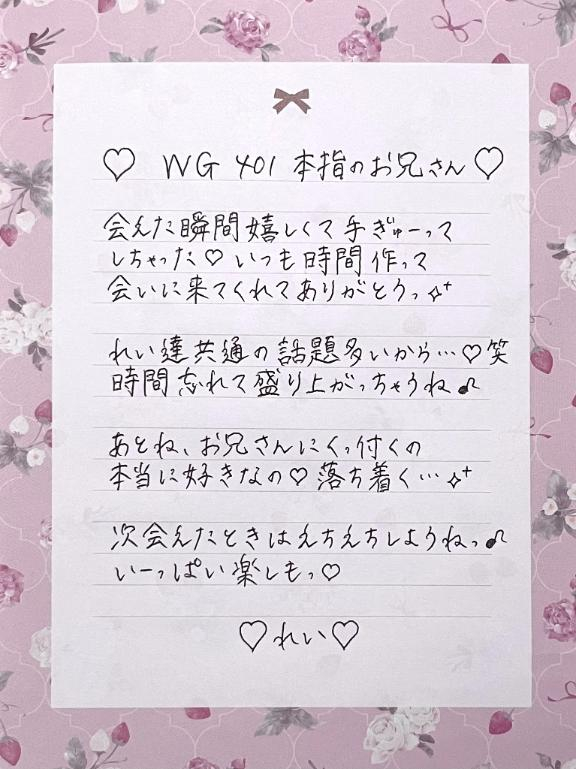 ♡ WG 401 本指のお兄さん ♡
会えた瞬間嬉しくて手ぎゅーって
しちゃった♡いつも時間作って
会いに来てくれてありがとうっ✧⁺
れい達共通の話題多いから…♡笑
時間忘れて盛り上がっちゃうね♫
あとね、お兄さんにくっ付くの
本当に好きなの♡落ち着く…✧⁺
次会えたときはえちえちしようねっ♫
いーっぱい楽しもっ♡
♡れい♡